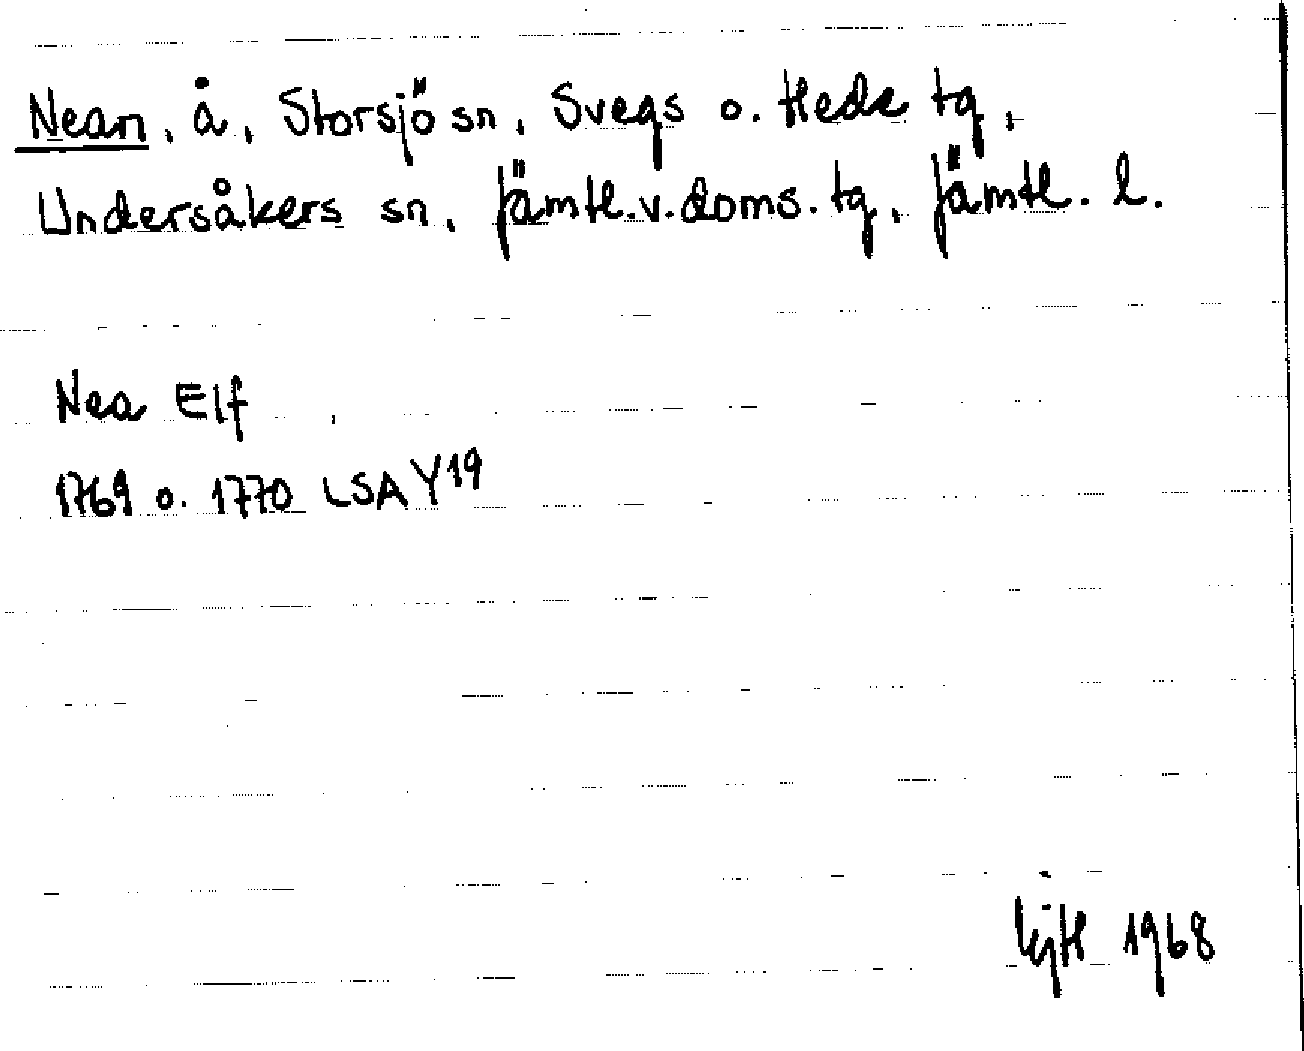 Nean, å, Storsjö sn, Svegs o. Hede tg,
Undersåkers sn, Jämtl.v.doms.tg, Jämtl. l.
Nea Elf
1769 o. 1770 LSA Y19
1968